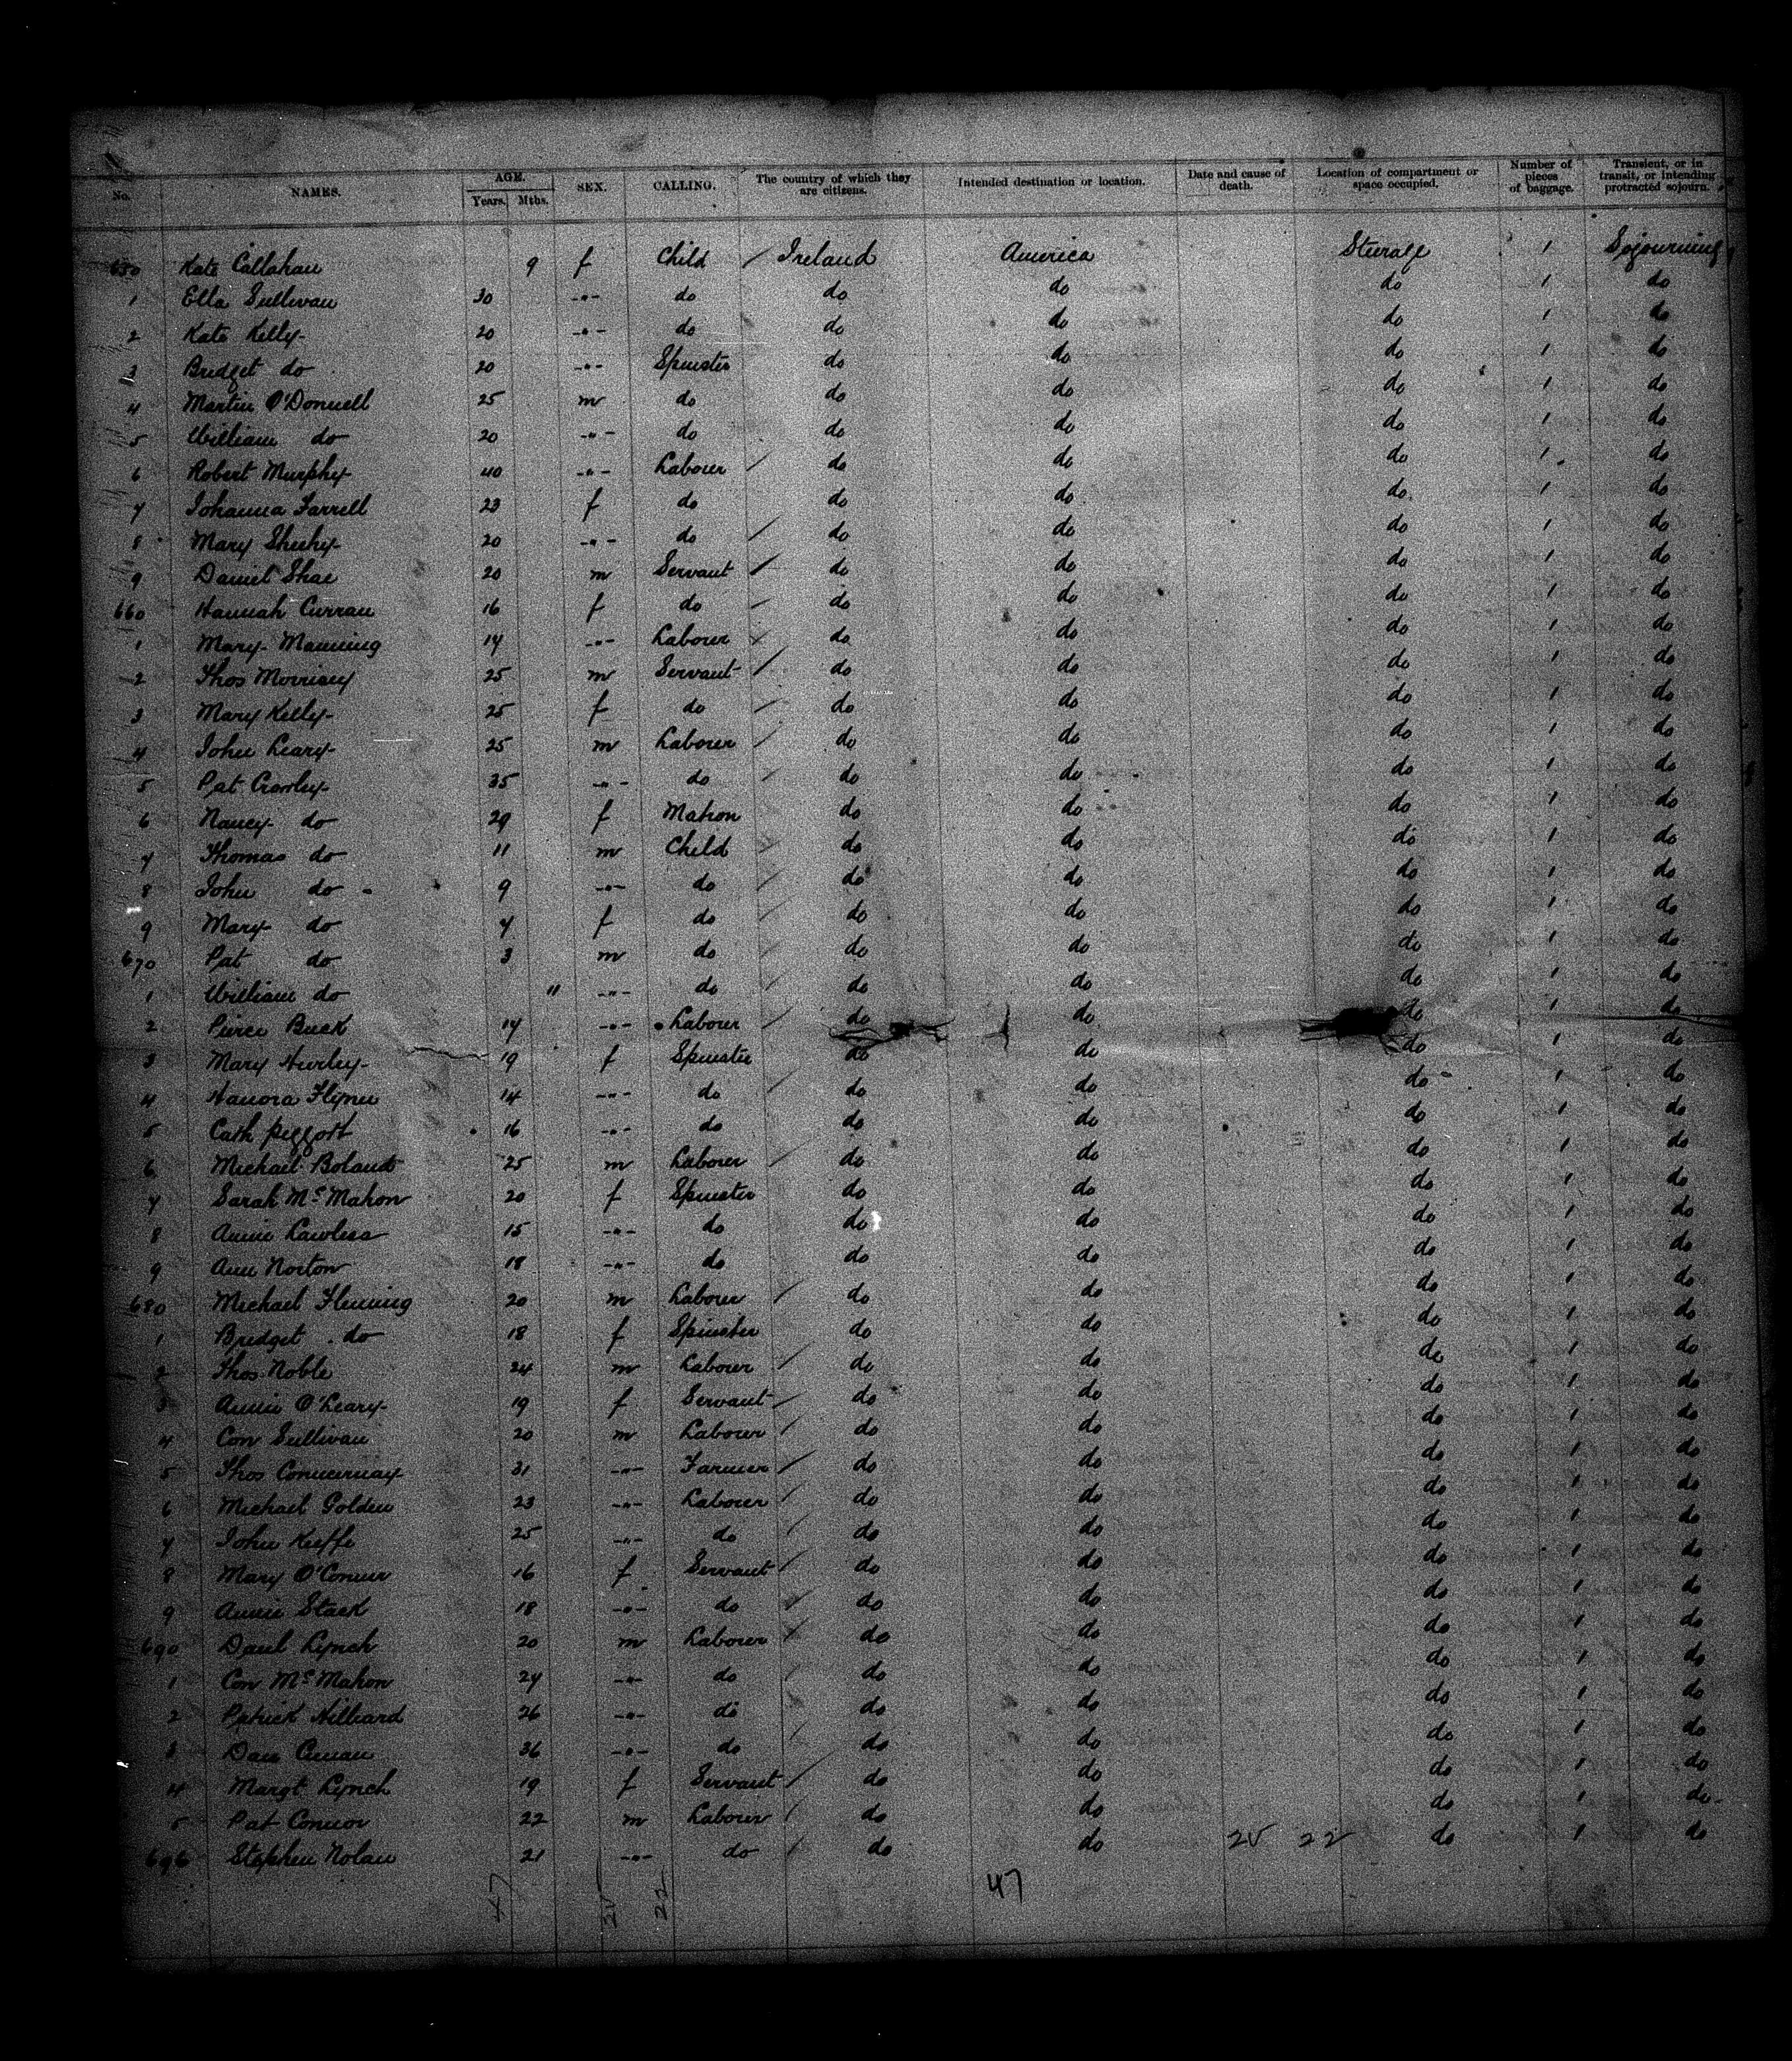 No. NAMES. AGE. Years. Mths. SEX. CALLING. The country of which they are citizens. Intended destination or location. Date and cause of death. Location of compartment or space occupied. Number of pieces of baggage. Transient, or in transit, or intending protracted sojourn.
650 Kate Callahan 9 f Child Ireland America Steerage 1 Sojourning
1 Ella Sullivan 30 -"- do do do do 1 do
2 Kate Kelly 20 -"- do do do do 1 do
3 Bridget do 20 -"- Spinster do do do 1 do
4 Martin O'Donnell 25 m do do do do 1 do
5 William do 20 -"- do do do do 1 do
6 Robert Murphy 40 -"- Labourer do do do 1 do
7 Johanna Farrell 23 f do do do do 1 do
8 Mary Sheehy 20 -"- do do do do 1 do
9 Daniel Shae 20 m Servant do do do 1 do
660 Hannah Curran 16 f do do do do 1 do
1 Mary Manning 17 -"- Labourer do do do 1 do
2 Thos Morrisey 25 m Servant do do do 1 do
3 Mary Kelly 25 f do do do do 1 do
4 John Leary 25 m Labourer do do do 1 do
5 Pat Crowley 35 -"- do do do do 1 do
6 Nancy do 29 f Matron do do do 1 do
7 Thomas do 11 m Child do do do 1 do
8 John do 9 -"- do do do do 1 do
9 Mary do 7 f do do do do 1 do
670 Pat do 3 m do do do do 1 do
1 William do 11 -"- do do do do 1 do
2 Pierce Buck 17 -"- Labour do do do 1 do
3 Mary Hurley 19 f Spinster do do do 1 do
4 Hanora Flynn 14 -"- do do do do 1 do
5 Cath Piggott 16 -"- do do do do 1 do
6 Michael Boland 25 m Labourer do do do 1 do
7 Sarah McMahon 20 f Spinster do do do 1 do
8 Annie Lawless 15 -"- do do do do 1 do
9 Ann Norton 18 -"- do do do do 1 do
680 Michael Fleming 20 m Labourer do do do 1 do
1 Bridget do 18 f Spinster do do do 1 do
2 Thos Noble 24 m Labourer do do do 1 do
3 Annie O'Leary 19 f Servant do do do 1 do
4 Con Sullivan 20 m Labourer do do do 1 do
5 Thos 31 -"- Farmer do do do 1 do
6 Michael Golden 23 -"- Labourer do do do 1 do
7 John Keeffe 25 -"- do do do do 1 do
8 Mary O'Connor 16 f Servant do do do 1 do
9 Annie Stack 18 -"- do do do do 1 do
690 Danl Lynch 20 m Labourer do do do 1 do
1 Con McMahon 27 -"- do do do do 1 do
2 Patrick Hilliard 26 -"- do do do do 1 do
3 Dan 36 -"- do do do do 1 do
4 Margt Lynch 19 f Servant do do do 1 do
5 Pat Connor 22 m Labourer do do do 1 do
696 Stephen Nolan 21 -"- do do do 25 22 do 1 do
47 25 22 47